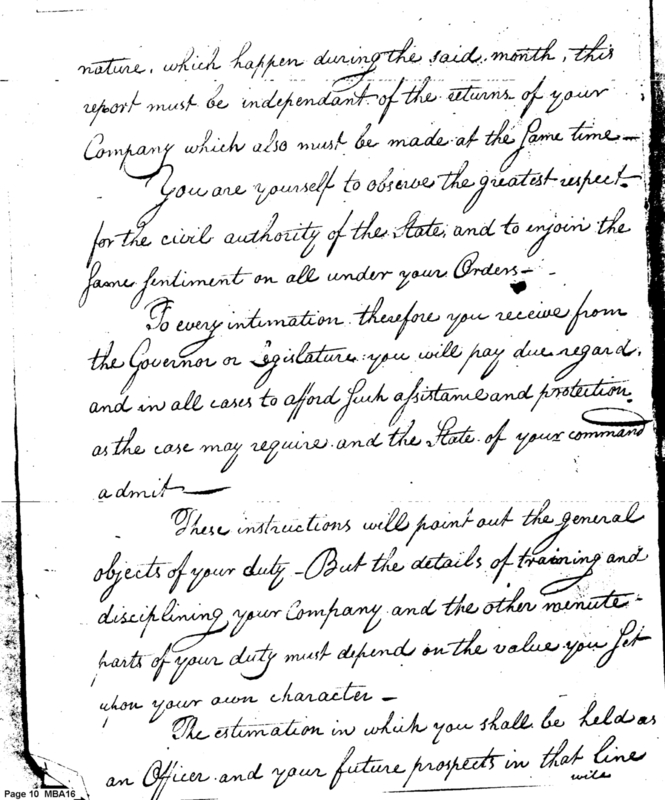 nature, which happen during the said month, this
report must be independant of the returns of your
Company which also must be made at the same time —
You are yourself to observe the greatest respect
for the civil authority of the State, and to enjoin the
same sentiment on all under your Orders —
To every intimation therefore you receive from
the Governor or Legislature you will pay due regard,
and in all cases to afford such assistance and protection
as the case may require and the State of your command
admit —
These instructions will point out the general
objects of your duty — But the details of training and
disciplining your Company and the other menute
parts of your duty must depend on the value you set
upon your own character —
The estimation in which you shall be held as
an Officer and your future prospects in that line
will
Page 10 MBA16